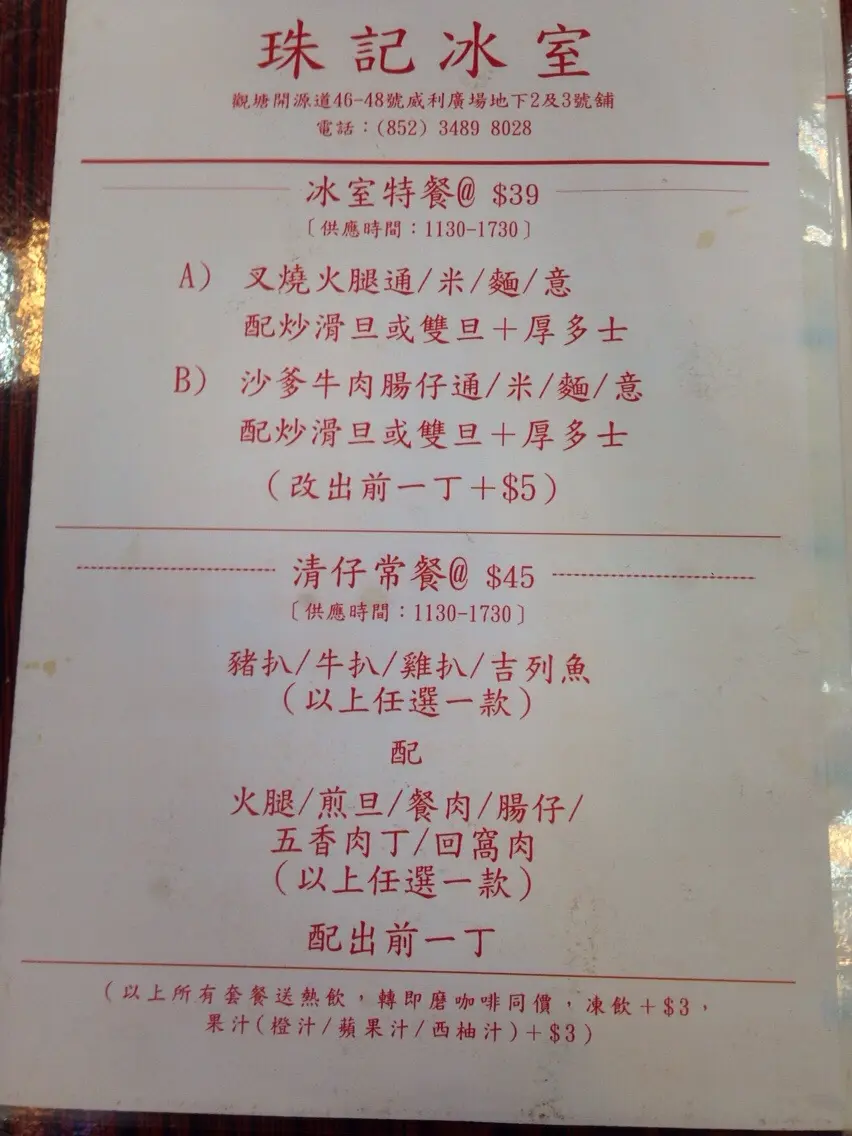 珠記冰室
觀塘開源道46-48號威利廣場地下2及3號舖
電話：(852) 3489 8028
冰室特餐@ $39
〔供應時間：1130-1730〕
A) 叉燒火腿通/米/麵/意
配炒滑旦或雙旦＋厚多士
B) 沙爹牛肉腸仔通/米/麵/意
配炒滑旦或雙旦＋厚多士
(改出前一丁＋$5)
清仔常餐@ $45
〔供應時間：1130-1730〕
豬扒/牛扒/雞扒/吉列魚
(以上任選一款)
配
火腿/煎旦/餐肉/腸仔/
五香肉丁/回窩肉
(以上任選一款)
配出前一丁
(以上所有套餐送熱飲，轉即磨咖啡同價，凍飲＋$3，
果汁(橙汁/蘋果汁/西柚汁)＋$3)